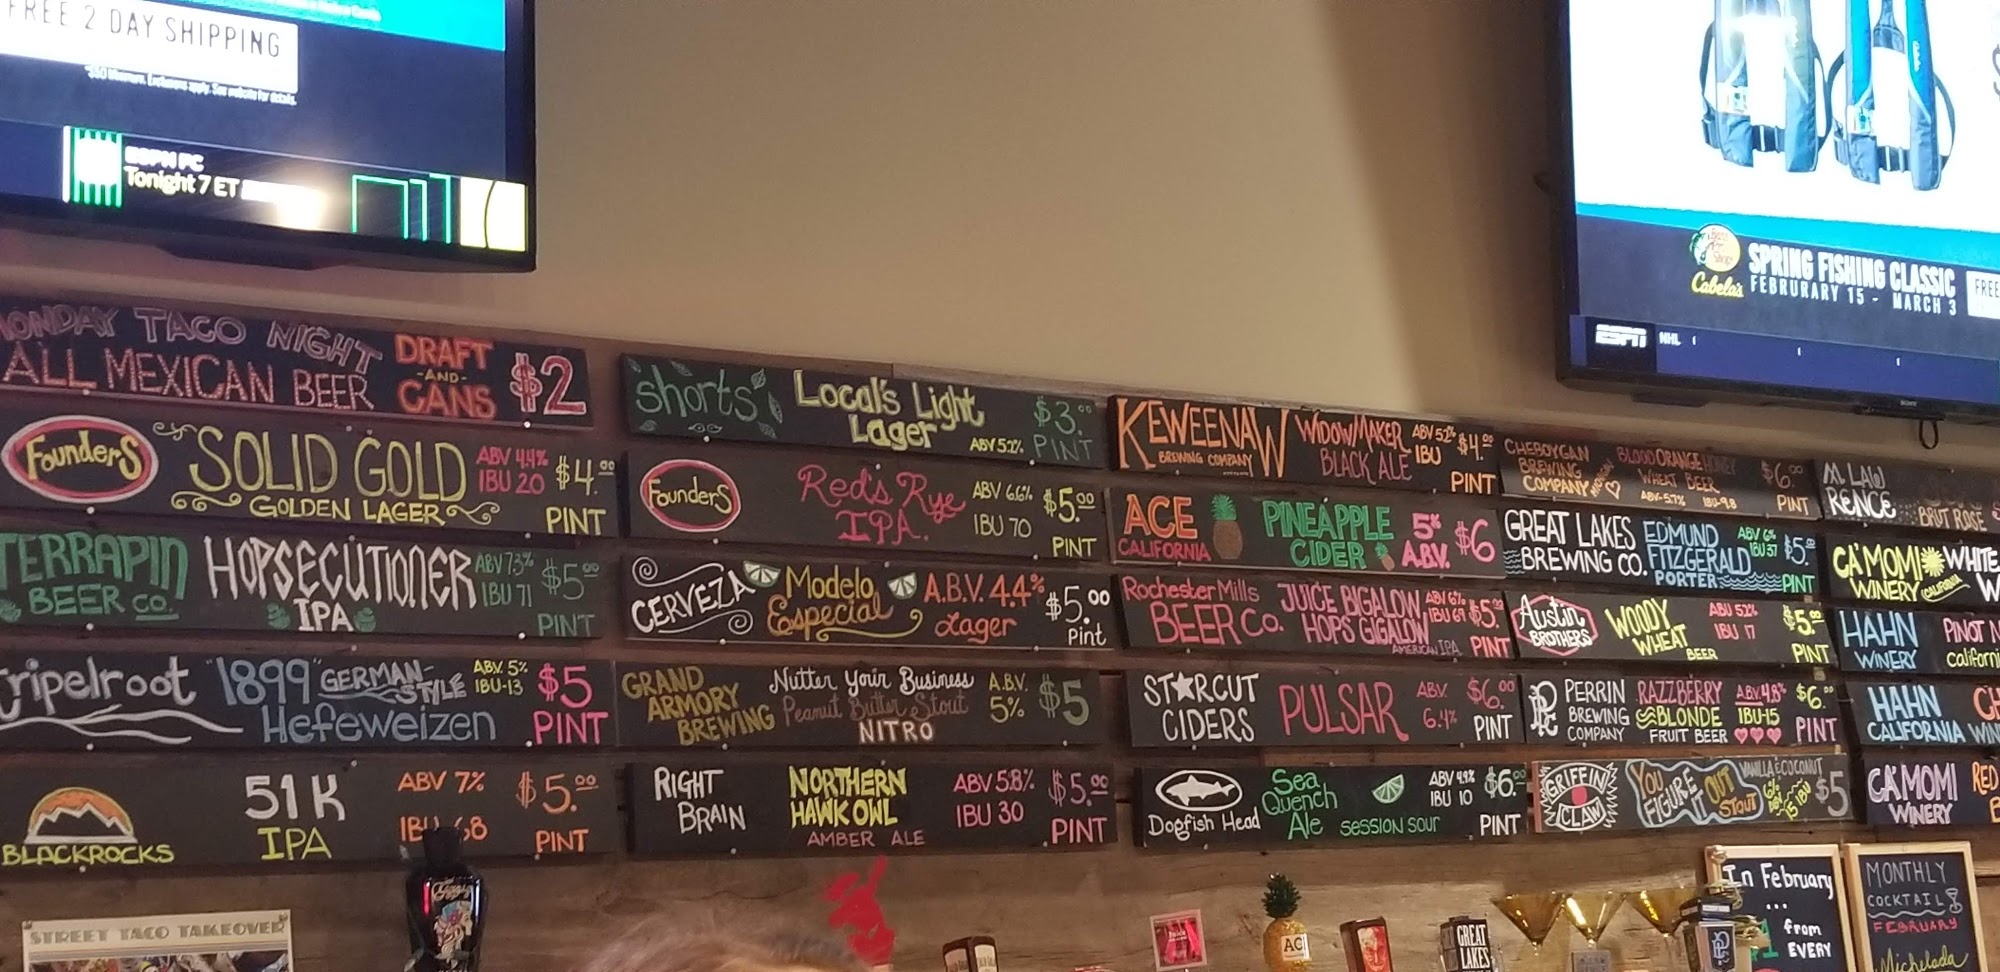 FREE 2 DAY SHIPPING
ESPN FC
Tonight 7 ET
Bass Pro Shops
Cabela's
SPRING FISHING CLASSIC
FEBRURARY 15 - MARCH 3
FREE
ESPN NHL
SONY
MONDAY TACO NIGHT
ALL MEXICAN BEER
DRAFT
-AND-
CANS
$2
FOUNDERS
SOLID GOLD
GOLDEN LAGER
ABV 4.4%
IBU 20
$4.00
PINT
TERRAPIN
BEER CO.
HOPSECUTIONER
IPA
ABV 7.3%
IBU 71
$5.00
PINT
Tripelroot
"1899" GERMAN-STYLE
Hefeweizen
ABV. 5%
IBU-13
$5
PINT
BLACKROCKS
51K
IPA
ABV 7%
IBU 68
$5.00
PINT
Shorts'
Local's Light
Lager
ABV 5.2%
$3.00
PINT
FOUNDERS
Red's Rye
IPA.
ABV 6.6%
IBU 70
$5.00
PINT
CERVEZA
Modelo
Especial
A.B.V. 4.4%
Lager
$5.00
Pint
GRAND
ARMORY
BREWING
Nutter Your Business
Peanut Butter Stout
NITRO
A.B.V.
5%
$5
RIGHT
BRAIN
NORTHERN
HAWK OWL
AMBER ALE
ABV 5.8%
IBU 30
$5.00
PINT
KEWEENAW
BREWING COMPANY
WIDOWMAKER
BLACK ALE
ABV 5.2%
IBU
$4.00
PINT
ACE
CALIFORNIA
PINEAPPLE
CIDER
5%
A.B.V.
$6
Rochester Mills
BEER Co.
JUICE BIGALOW
HOPS GIGALOW
AMERICAN IPA
ABV 6%
IBU 69
$5.00
PINT
ST★RCUT
CIDERS
PULSAR
ABV.
6.4%
$6.00
PINT
Dogfish Head
Sea
Quench
Ale
SESSION SOUR
ABV 4.9%
IBU 10
$6.00
PINT
CHEBOYGAN
BREWING
COMPANY
MICHIGAN
BLOOD ORANGE HONEY
WHEAT BEER
ABV-5.7% IBU-9.8
$6.00
PINT
GREAT LAKES
BREWING CO.
EDMUND
FITZGERALD
PORTER
ABV 6%
IBU 37
$5.00
PINT
Austin
BROTHERS
WOODY
WHEAT
BEER
ABU 5.2%
IBU 17
$5.00
PINT
PERRIN
BREWING
COMPANY
RAZZBERRY
BLONDE
FRUIT BEER
A.B.V. 4.8%
IBU-15
$6.00
PINT
GRIFFIN
CLAW
YOU
FIGURE IT OUT
STOUT
VANILLA & COCONUT
$5
M. LAW
RENCE
BRUT ROSE
CA'MOMI
WINERY
CALIFORNIA
WHITE
HAHN
WINERY
PINOT
HAHN
CALIFORNIA
CA'MOMI
WINERY
RED
STREET TACO TAKEOVER
AC
GREAT
LAKES
In February
...
$1 from
EVERY
MONTHLY
COCKTAIL
FEBRUARY
Michelada